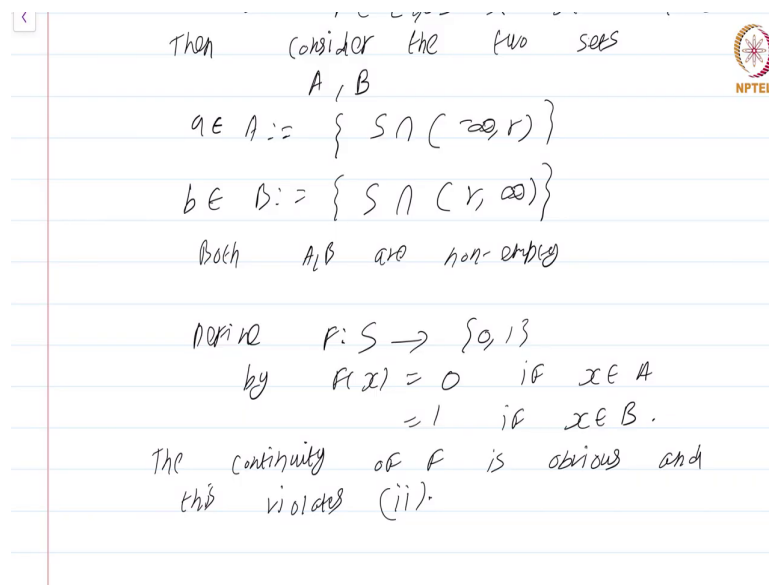 Then consider the two sets
A, B
a ∈ A := { S ∩ (-∞, r) }
b ∈ B := { S ∩ (r, ∞) }
Both A, B are non-empty
Define F: S → {0, 1}
by F(x) = 0 if x ∈ A
= 1 if x ∈ B.
The continuity of F is obvious and
this violates (ii).
NPTEL